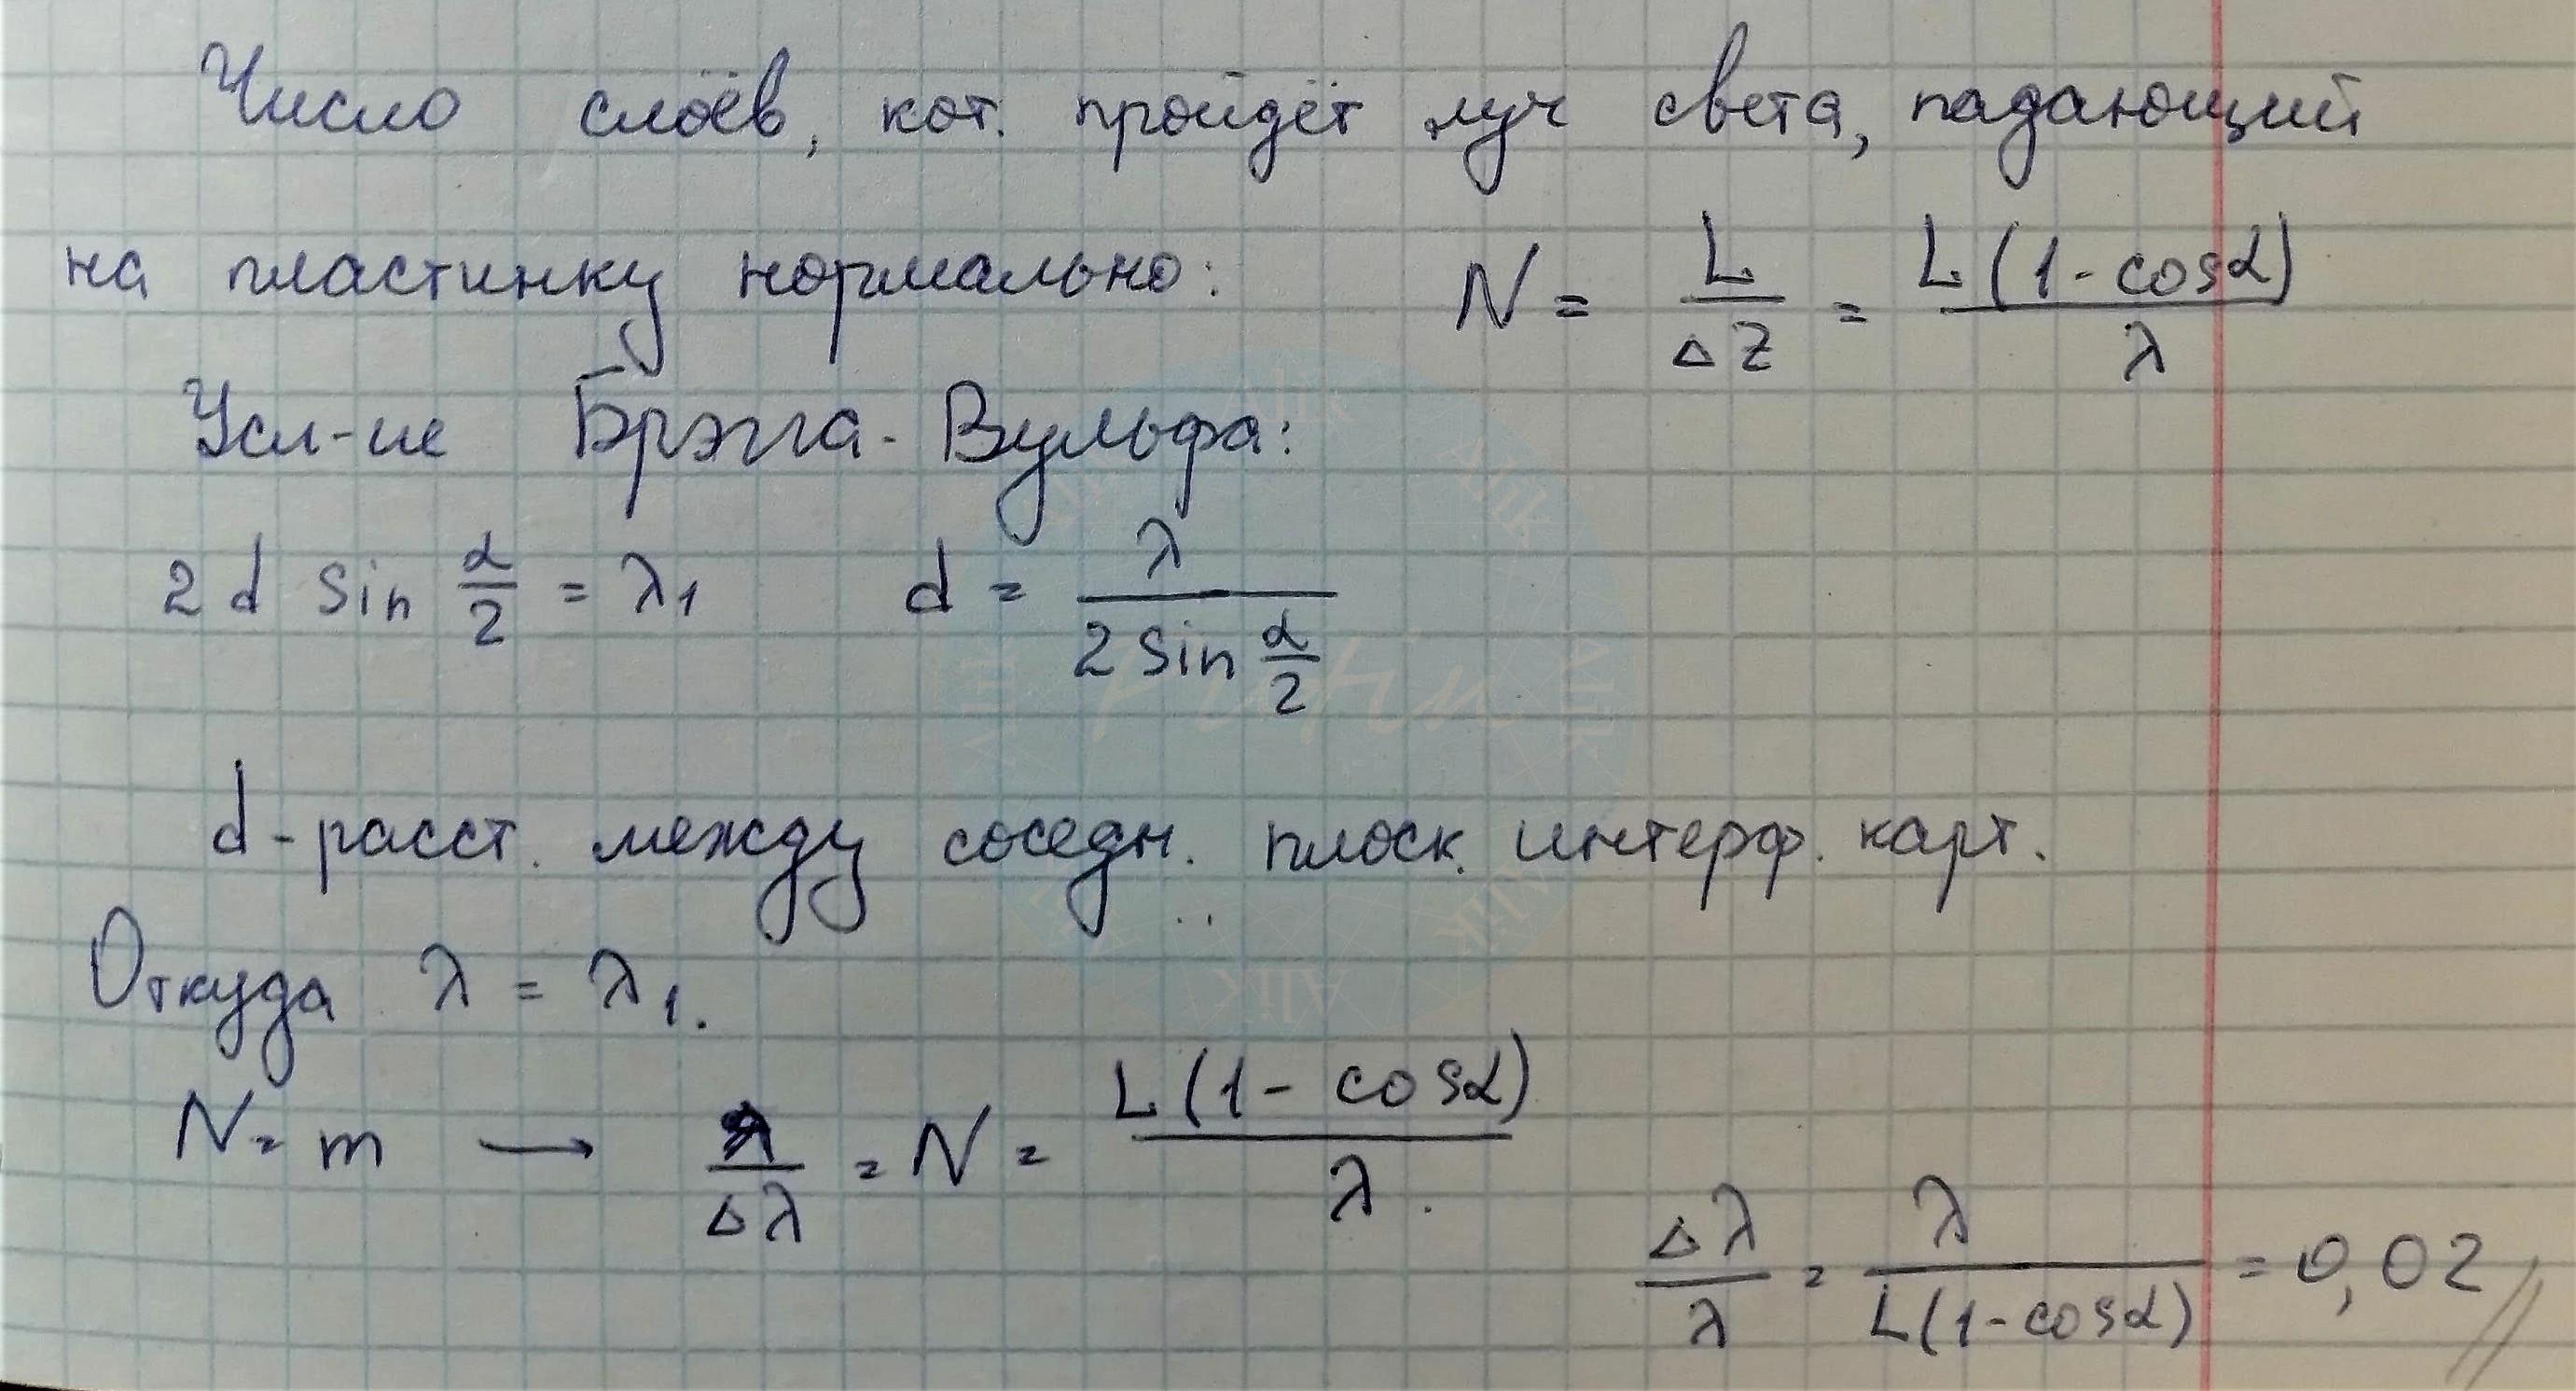 Число слоёв, кот. пройдёт луч света, падающий
на пластинку нормально: N = L/ΔZ = L(1-cosα)/λ
Усл-ие Брэгга-Вульфа:
2d sin α/2 = λ₁ d = λ/(2 sin α/2)
d-расст. между соседн. плоск. интерф. карт.
Откуда λ = λ₁.
N = m → λ/Δλ = N = L(1-cosα)/λ.
Δλ/λ = λ/L(1-cosα) = 0,02 //